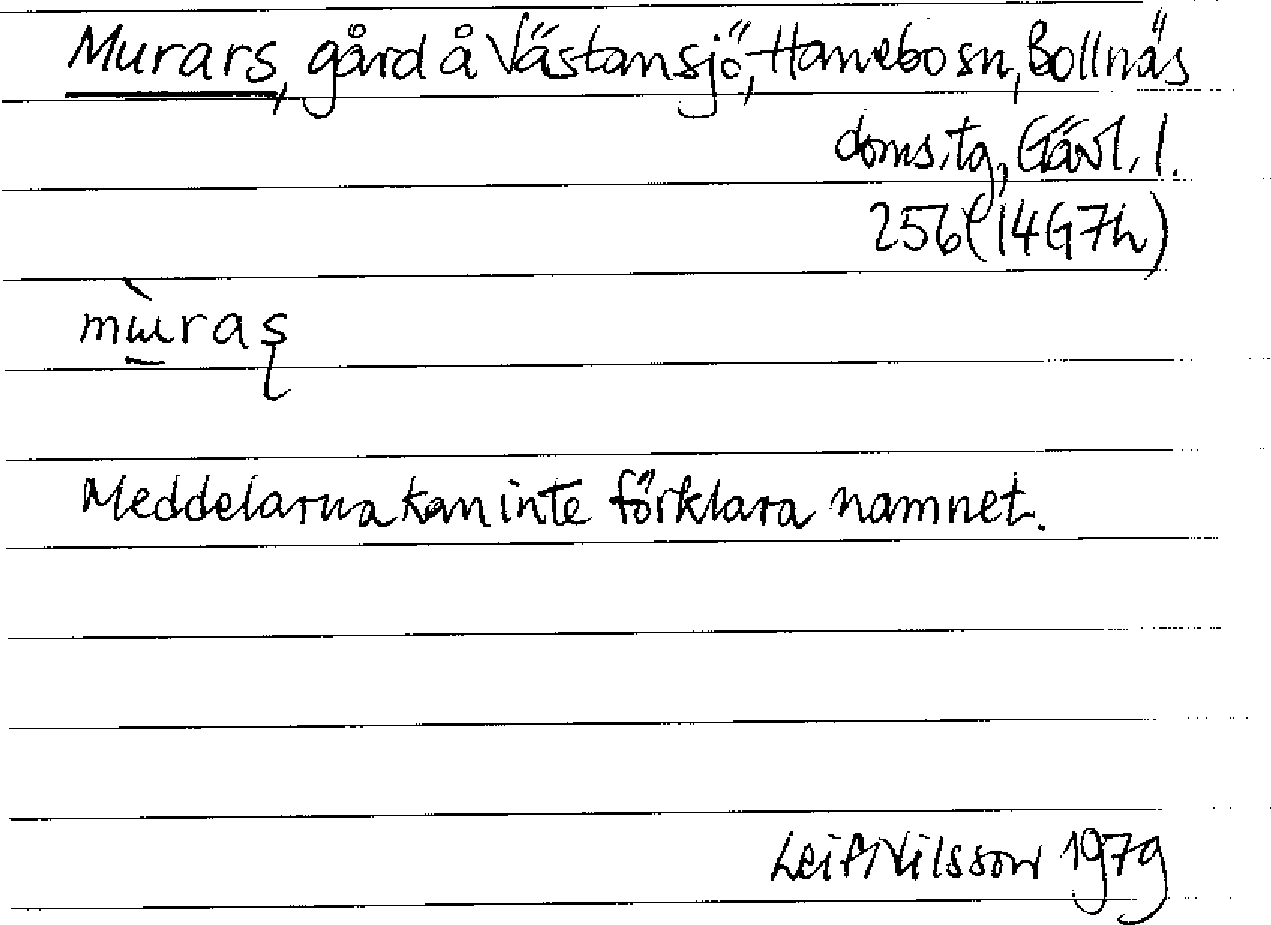 Murars, gård å Västansjö, Hanebo sn, Bollnäs
doms.tg, Gävl. l.
256 (14G7h)
mɯ̀raʂ
Meddelarna kan inte förklara namnet.
Leif Nilsson 1979